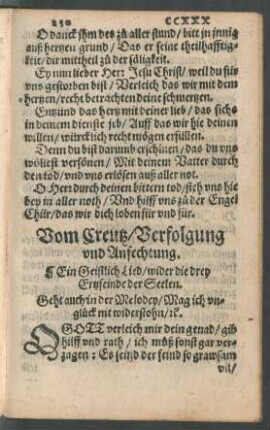 230 CCXXX
O danck jhm des zů aller stund/ bitt jn jnnig
auß hertzen grund/ Das er seine theilhafftig-
keit/ dir mittheil zů der säligkeit.
Ey nun lieber Herr Jesu Christ/ weil du für
vns gestorben bist/ Verleich das wir mit dem
hertzen/ recht betrachten deine schmertzen.
Entzünd das hertz mit deiner lieb/ das sichs
in deinem dienste jeb/ Auff das wir hie deinen
willen/ würcklich recht mögen erfüllen.
Denn du bist darumb erschinen/ das du vns
wöllest versönen/ Mit deinem Vatter durch
den tod/ vnd vns erlösen auß aller not.
O Herr durch deinen bittern tod/ sich vns hie
bey in aller noth/ Vnd hilff vns zů der Engel
Chör/ das wir dich loben für vnd für.
Vom Creutz/ Verfolgung
vnd Anfechtung.
¶ Ein Geistlich Lied/ wider die drey
Ertzfeinde der Seelen.
Geht auch in der Melodey/ Mag ich vn-
glück nit widerstohn/ ꝛc.
O GOTT verleich mir dein genad/ gib
hilff vnd rath/ ich můß sonst gar ver-
zagen: Es seind der feind so grawsam
vil/